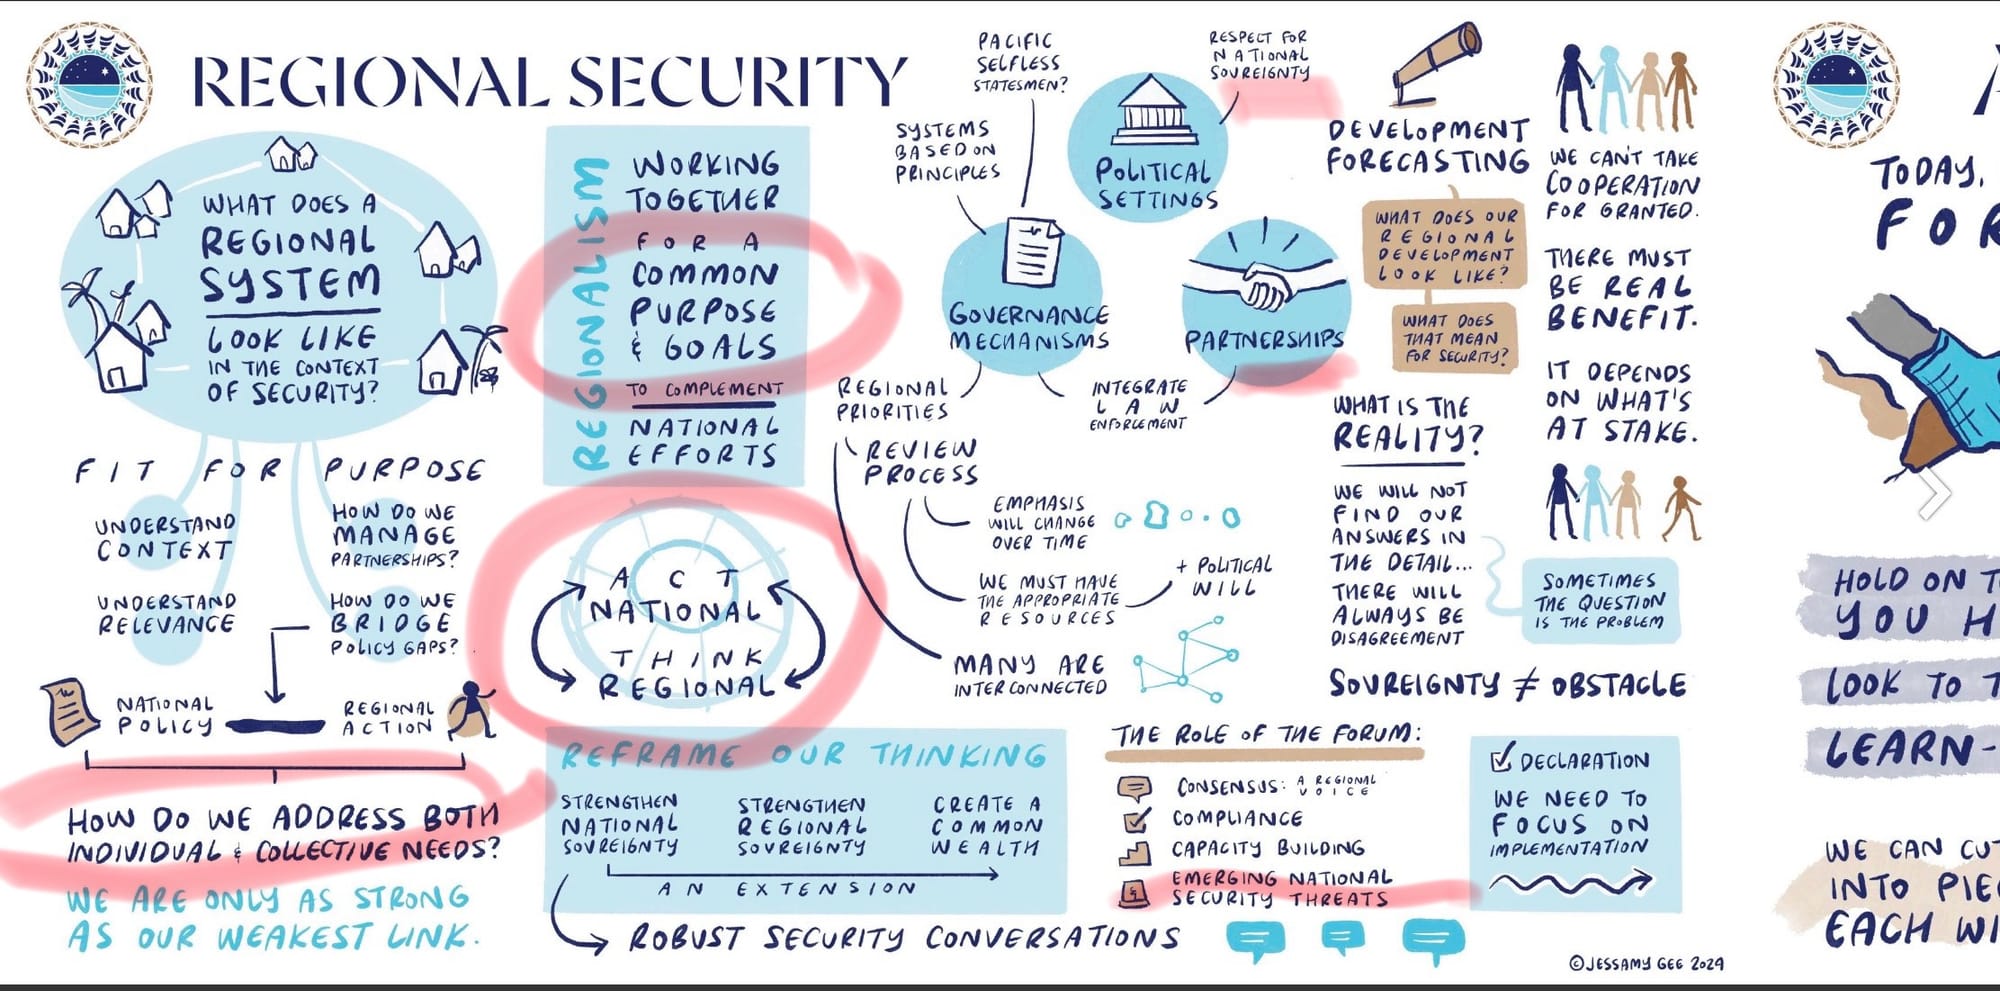 REGIONAL SECURITY
WHAT DOES A
REGIONAL
SYSTEM
LOOK LIKE
IN THE CONTEXT
OF SECURITY?
FIT FOR PURPOSE
UNDERSTAND
CONTEXT
HOW DO WE
MANAGE
PARTNERSHIPS?
UNDERSTAND
RELEVANCE
HOW DO WE
BRIDGE
POLICY GAPS?
NATIONAL
POLICY
REGIONAL
ACTION
HOW DO WE ADDRESS BOTH
INDIVIDUAL & COLLECTIVE NEEDS?
WE ARE ONLY AS STRONG
AS OUR WEAKEST LINK.
REGIONALISM
WORKING
TOGETHER
FOR A
COMMON
PURPOSE
& GOALS
TO COMPLEMENT
NATIONAL
EFFORTS
ACT
NATIONAL
THINK
REGIONAL
REFRAME OUR THINKING
STRENGTHEN
NATIONAL
SOVREIGNTY
STRENGTHEN
REGIONAL
SOVREIGNTY
CREATE A
COMMON
WEALTH
AN EXTENSION
ROBUST SECURITY CONVERSATIONS
PACIFIC
SELFLESS
STATESMEN?
SYSTEMS
BASED ON
PRINCIPLES
RESPECT FOR
NATIONAL
SOVREIGNTY
POLITICAL
SETTINGS
GOVERNANCE
MECHANISMS
PARTNERSHIPS
REGIONAL
PRIORITIES
INTEGRATE
LAW
ENFORCEMENT
REVIEW
PROCESS
EMPHASIS
WILL CHANGE
OVER TIME
WE MUST HAVE
THE APPROPRIATE
RESOURCES
+ POLITICAL
WILL
MANY ARE
INTERCONNECTED
THE ROLE OF THE FORUM:
CONSENSUS: A REGIONAL
VOICE
COMPLIANCE
CAPACITY BUILDING
EMERGING NATIONAL
SECURITY THREATS
DEVELOPMENT
FORECASTING
WHAT DOES OUR
REGIONAL
DEVELOPMENT
LOOK LIKE?
WHAT DOES
THAT MEAN
FOR SECURITY?
WHAT IS THE
REALITY?
WE WILL NOT
FIND OUR
ANSWERS IN
THE DETAIL...
THERE WILL
ALWAYS BE
DISAGREEMENT
SOMETIMES
THE QUESTION
IS THE PROBLEM
SOVREIGNTY ≠ OBSTACLE
WE CAN'T TAKE
COOPERATION
FOR GRANTED.
THERE MUST
BE REAL
BENEFIT.
IT DEPENDS
ON WHAT'S
AT STAKE.
DECLARATION
WE NEED TO
FOCUS ON
IMPLEMENTATION
©JESSAMY GEE 2024
TODAY,
FOR
HOLD ON T
YOU H
LOOK TO T
LEARN-
WE CAN CUT
INTO PIE
EACH WI